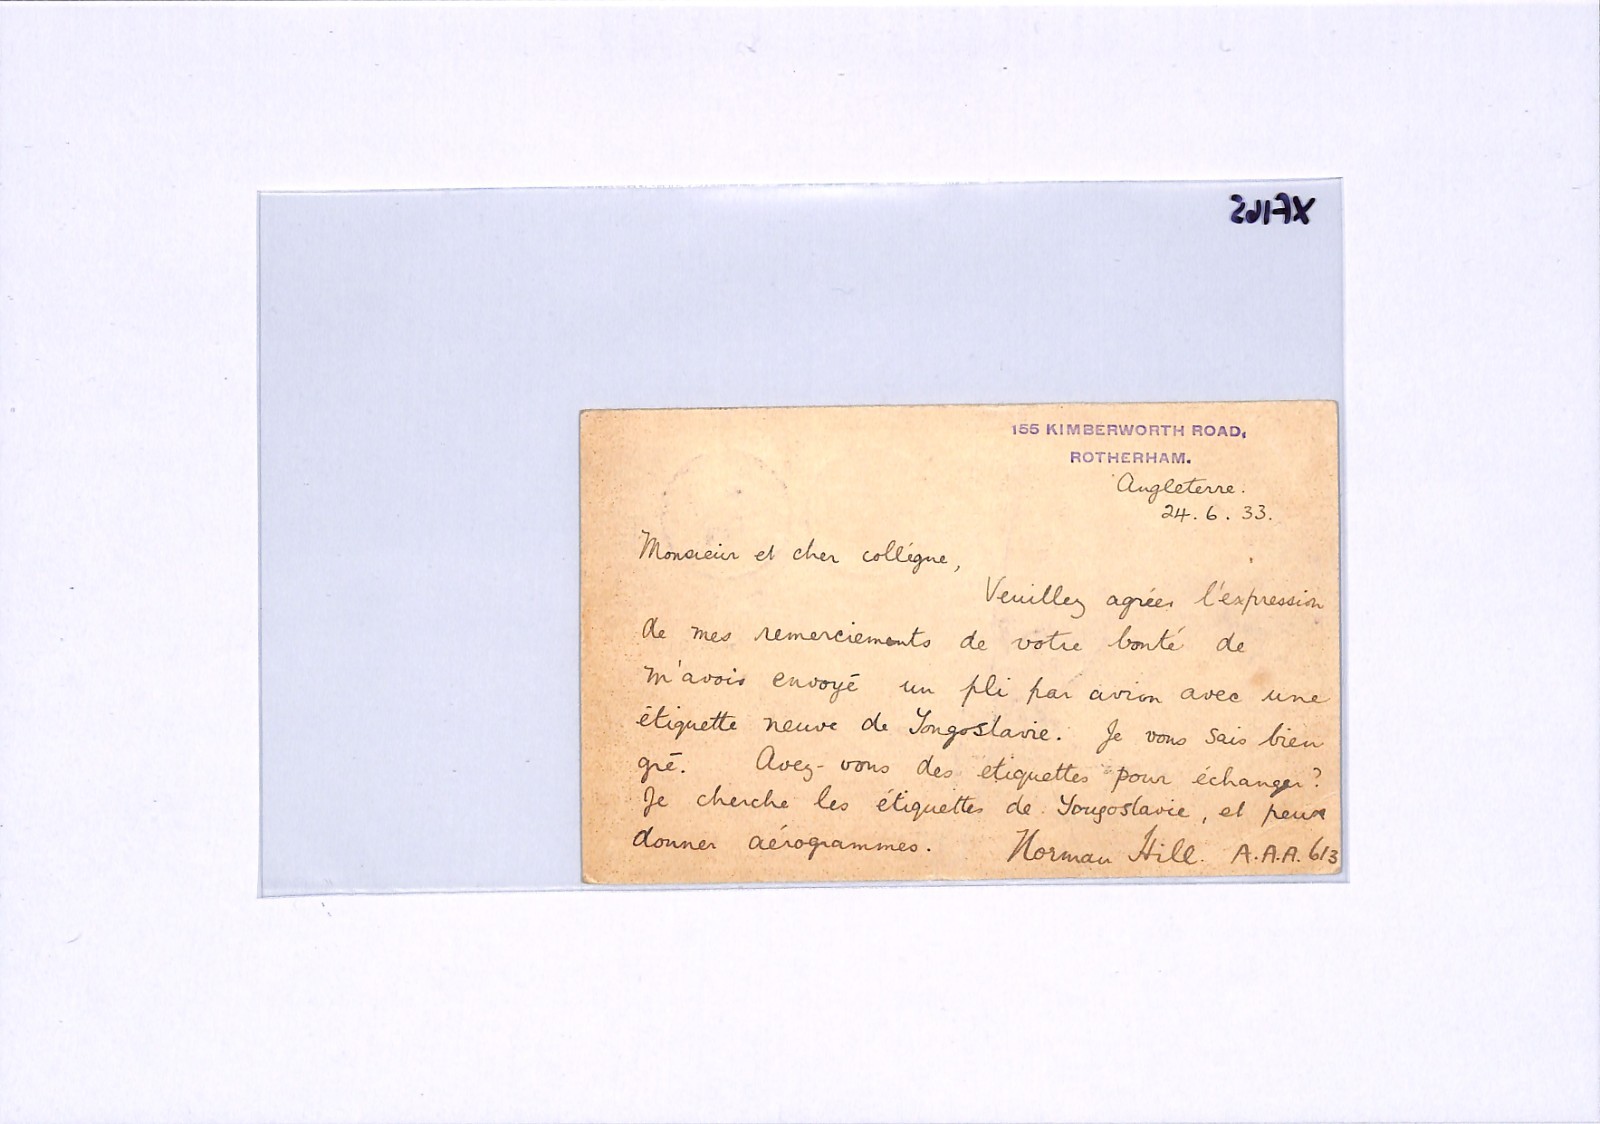 155 KIMBERWORTH ROAD,
ROTHERHAM.
Angleterre.
24.6.33.
Monsieur et cher collégue,
Veuillez agréer l'expression
de mes remerciements de votre bonté de
m'avois envoyé un pli par avion avec une
étiquette neuve de Yougoslavie. Je vous sais bien
gré. Avez-vous des etiquettes pour échanger?
Je cherche les étiquettes de Yougoslavie, et peux
donner aérogrammes. Norman Hill. A.A.A. 613